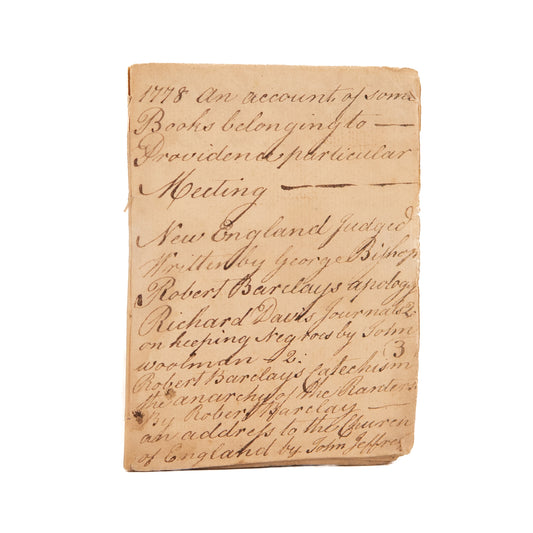 1778 an account of some
Books belonging to —
Providence particular
Meeting —
New England Judged
Written by George Bishop
Robert Barclays apology
Richard Davis Journals 2
on keeping Negroes by John
woolman - 2. (3
Robert Barclays Catechism
the anarchy of the Ranters
By Robert Barclay —
an address to the Church
of England by John Jeffroy